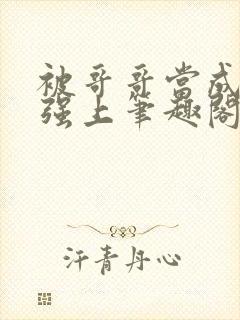 被哥哥当成
强上笔趣阁
汗青丹心